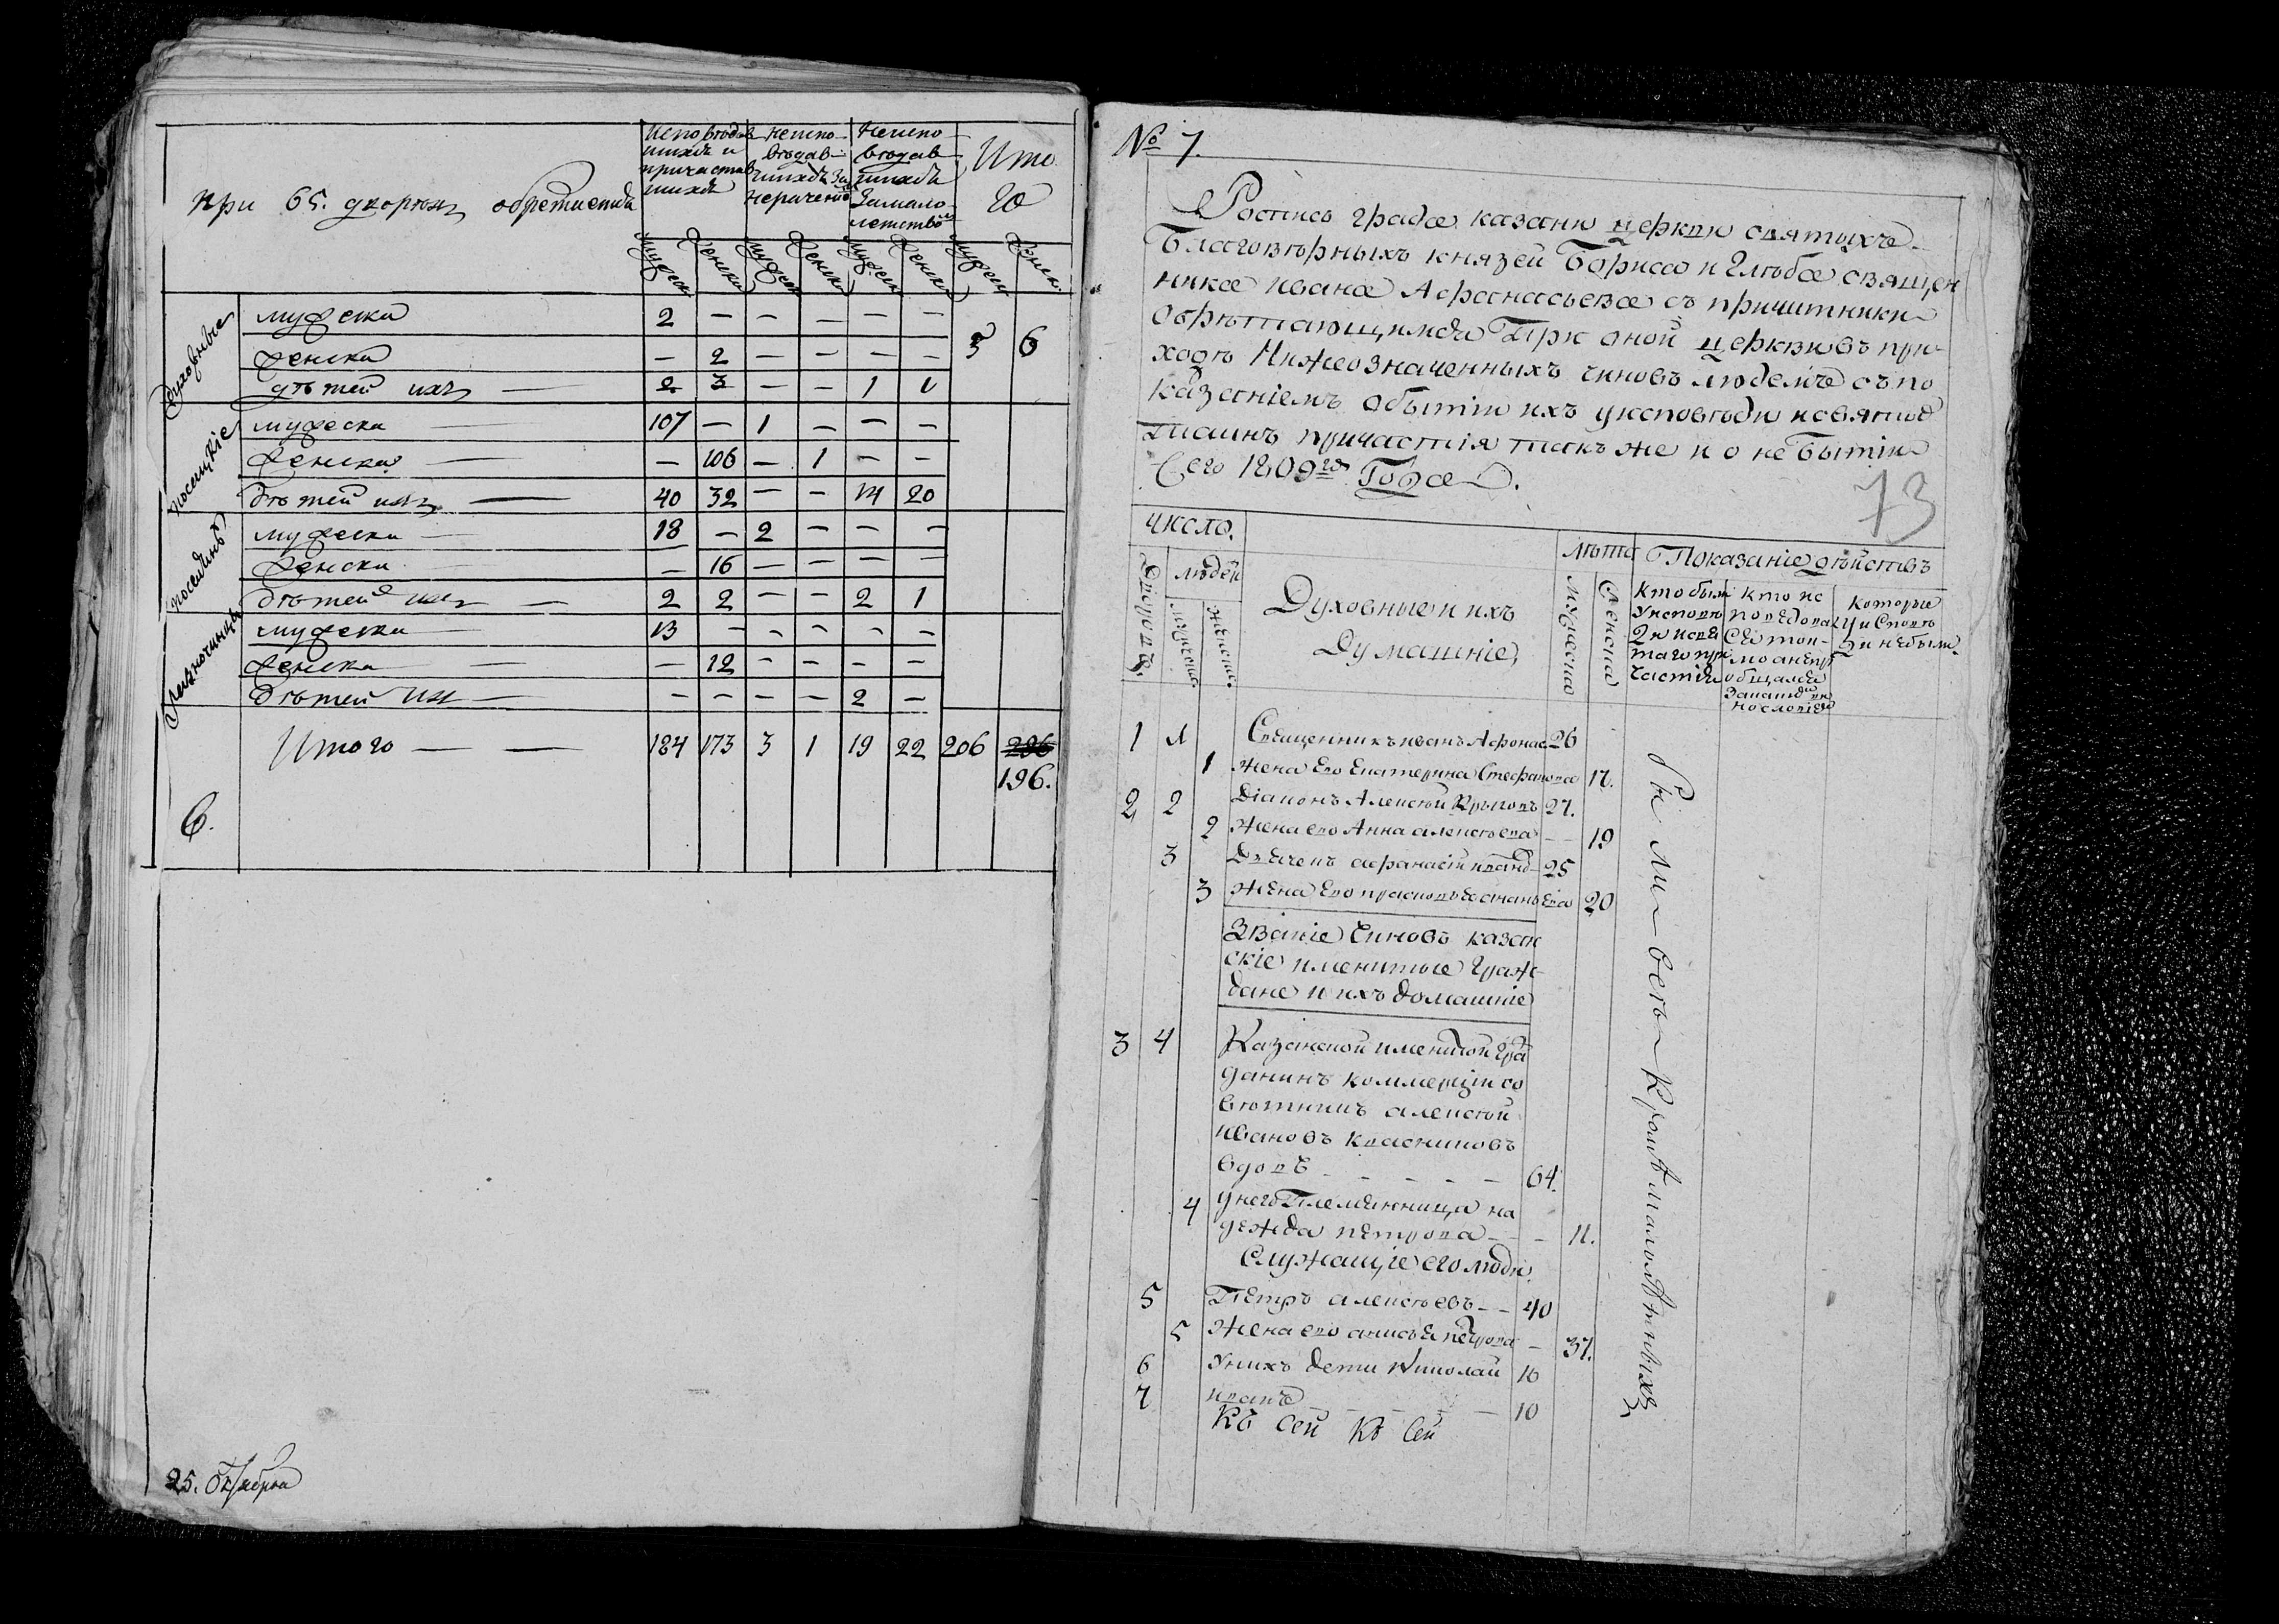 при 65. дворахъ обретается
исповѣдав
шихся и
причастив
шихся
неиспо
вѣдав
шихся за
нерачениѣ
неиспо
вѣдав
шихся
за мало
летствѡ
Ито
го
мужеск женск мужеск женск мужеск женск мужеск женск
духовные
мужеска 2 — — — — —
женска — 2 — — — — 5 6
дѣтей ихъ — 2 3 — — 1 1
посацкіе
мужеска 107 — 1 — — —
женска — — 106 — 1 — —
дѣтей ихъ — 40 32 — — 14 20
мужеска — 18 — 2 — — —
женска — 16 — — — —
дѣтей ихъ — 2 2 — — 2 1
разночинцы
мужеска — 13 — — — — —
женска — — 12 — — — —
дѣтей их — — — — — 2 —
Итого — — 184 173 3 1 19 22 206 206
196.
6.
25. Октября
№ 7.
Роспись града казани церкви святыхъ
Благовѣрныхъ князей Бориса и Глѣба священ
ника ивана Афанасьева съ причитники
обрѣтающимся При оной церкви въ при
ходѣ Нижеозначенныхъ чиновъ людемъ съ по
казаніемъ о бытіи ихъ у исповѣди и святыхъ
таинъ причастія так же и о не бытіи
Сего 1809го Года.
73
число.
людей
мужеска.
женска.
Духовные и ихъ
Думашніе
лѣта
мужеска
женска
Показаніе дѣйствъ
Кто были
у исповѣ
ди и свя
таго при
частія
кто ис
поведова
ся ток
мо а не пр
общался
Которые
у исповѣ
ди не были
1 1 Священникъ иванъ Афонас 26
1 жена Его Екатерина Стефанова 17.
2 2 Діаконъ Алексѣй Крыловъ 27.
2 жена его Анна алексѣева — — 19
3 Дьячекъ афанасій иванов 25
3 жена Его прасковья ананьева 20
Званіе чиновъ казан
скіе именитые граж
дане и ихъ домашніе
3 4 Казанской именитой гра
данинъ коммерціи со
вѣтникъ алексѣй
ивановъ квасниковъ
вдовъ — — — — — 64.
4 у него Племянница на
дежда петрова — — — 11.
Служащіе его люди
5 Петръ алексѣевъ — — 40
5 жена его анисья петрова — 37.
6 У нихъ дети Николай 16
7 иванъ — — — — — 10
Къ сей Къ сей
Были всѣ Кромѣ малолѣтныхъ